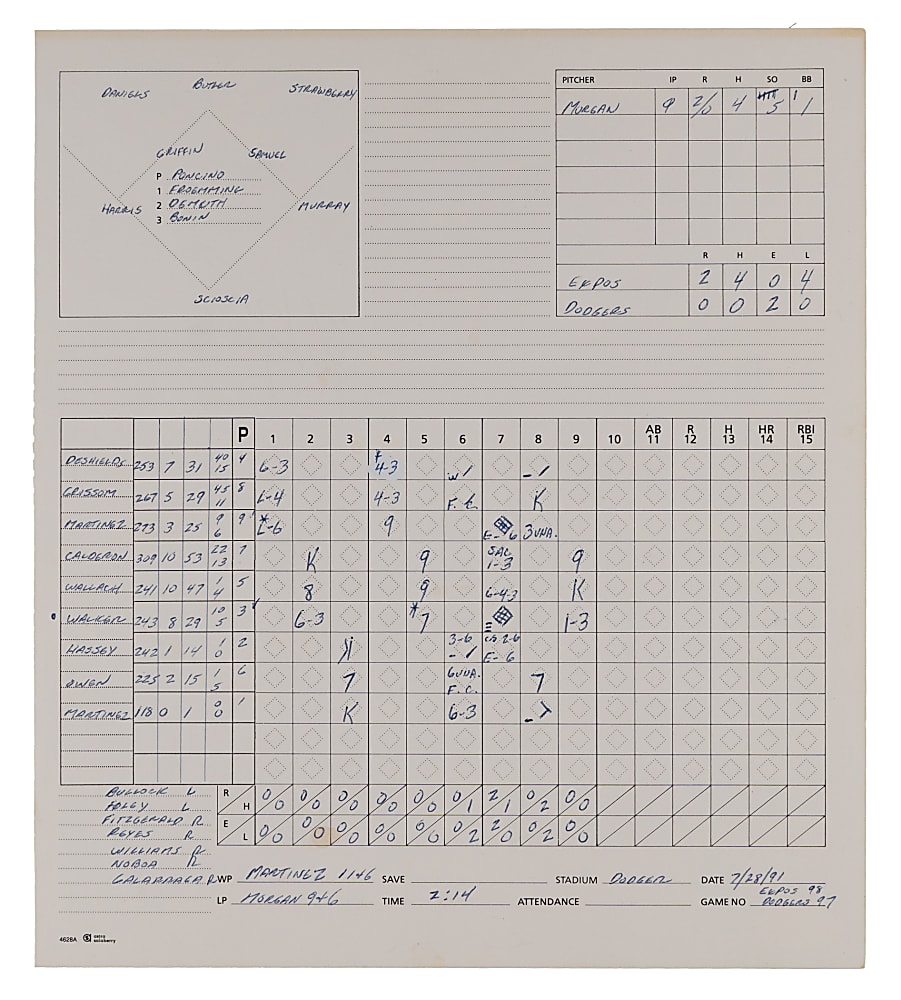 DANIELS BUTLER STRAWBERRY
GRIFFIN SAMUEL
P PONCINO
1 FROEMMING
2 DEMUTH
3 BONIN
HARRIS MURRAY
SCIOSCIA
PITCHER IP R H SO BB
MORGAN 9 2/0 4 5 1
R H E L
EXPOS 2 4 0 4
DODGERS 0 0 2 0
P 1 2 3 4 5 6 7 8 9 10 AB 11 R 12 H 13 HR 14 RBI 15
DESHIELDS 253 7 31 40 15 4 6-3 4-3
GRISSOM 267 5 29 45 11 8 L-4 4-3 F.C. K
MARTINEZ 273 3 25 9 6 9 L-6 9 E-6 3UNA.
CALDERON 309 10 53 22 13 7 K 9 SAC 1-3 9
WALLACH 241 10 47 1 4 5 8 9 6-4-3 K
WALKER 243 8 29 10 5 3 6-3 7 1-3
HASSEY 242 1 14 1 0 2 K 3-6 E-6
OWEN 225 2 15 1 5 6 7 6UNA. F.C. 7
MARTINEZ 118 0 1 0 0 1 K 6-3
BULLOCK L
FOLEY L
FITZGERALD R
REYES R
WILLIAMS R
NOBOA R
GALARRAGA R
R H 0/0 0/0 0/0 0/0 0/0 0/1 2/1 0/2 0/0
E L 0/0 0/0 0/0 0/0 0/0 0/2 2/0 0/2 0/0
WP MARTINEZ 11+6 SAVE STADIUM DODGER DATE 7/28/91
LP MORGAN 9+6 TIME 2:14 ATTENDANCE GAME NO EXPOS 98 DODGERS 97
4628A